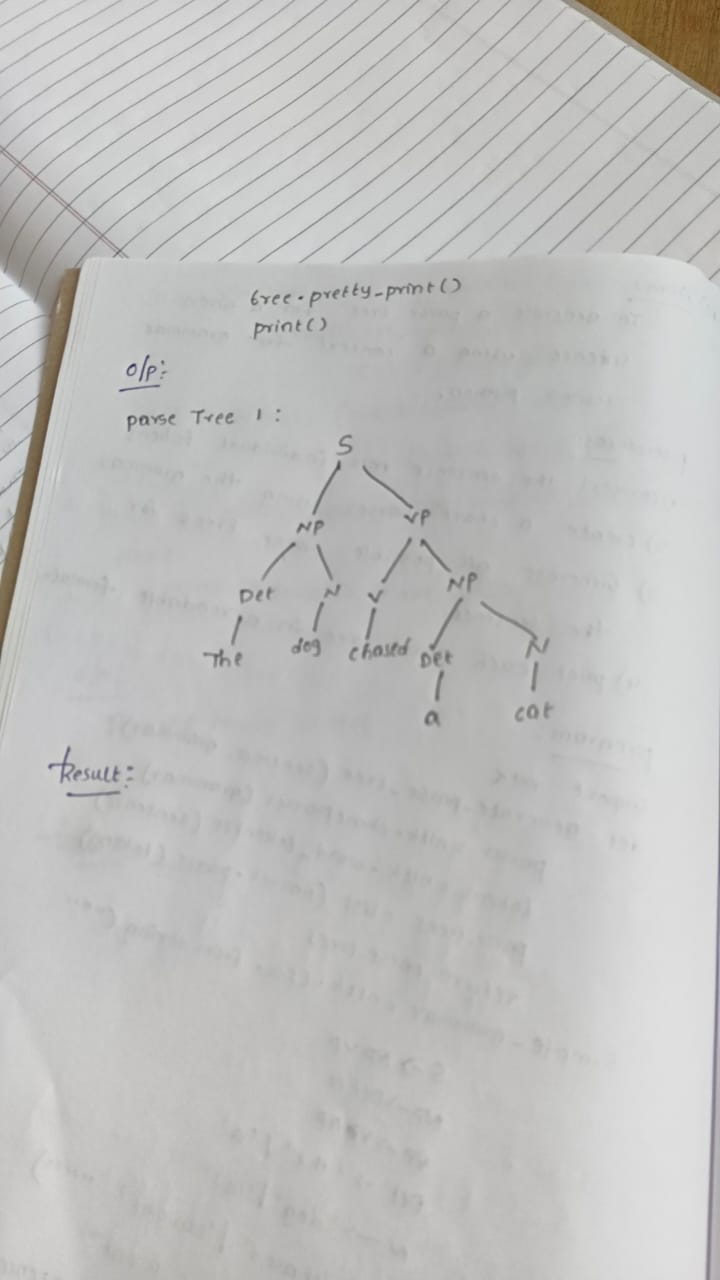 tree.pretty_print()
print()
O/P:
parse Tree 1:
S
NP VP
Det N V NP
The dog chased Det N
a cat
Result: